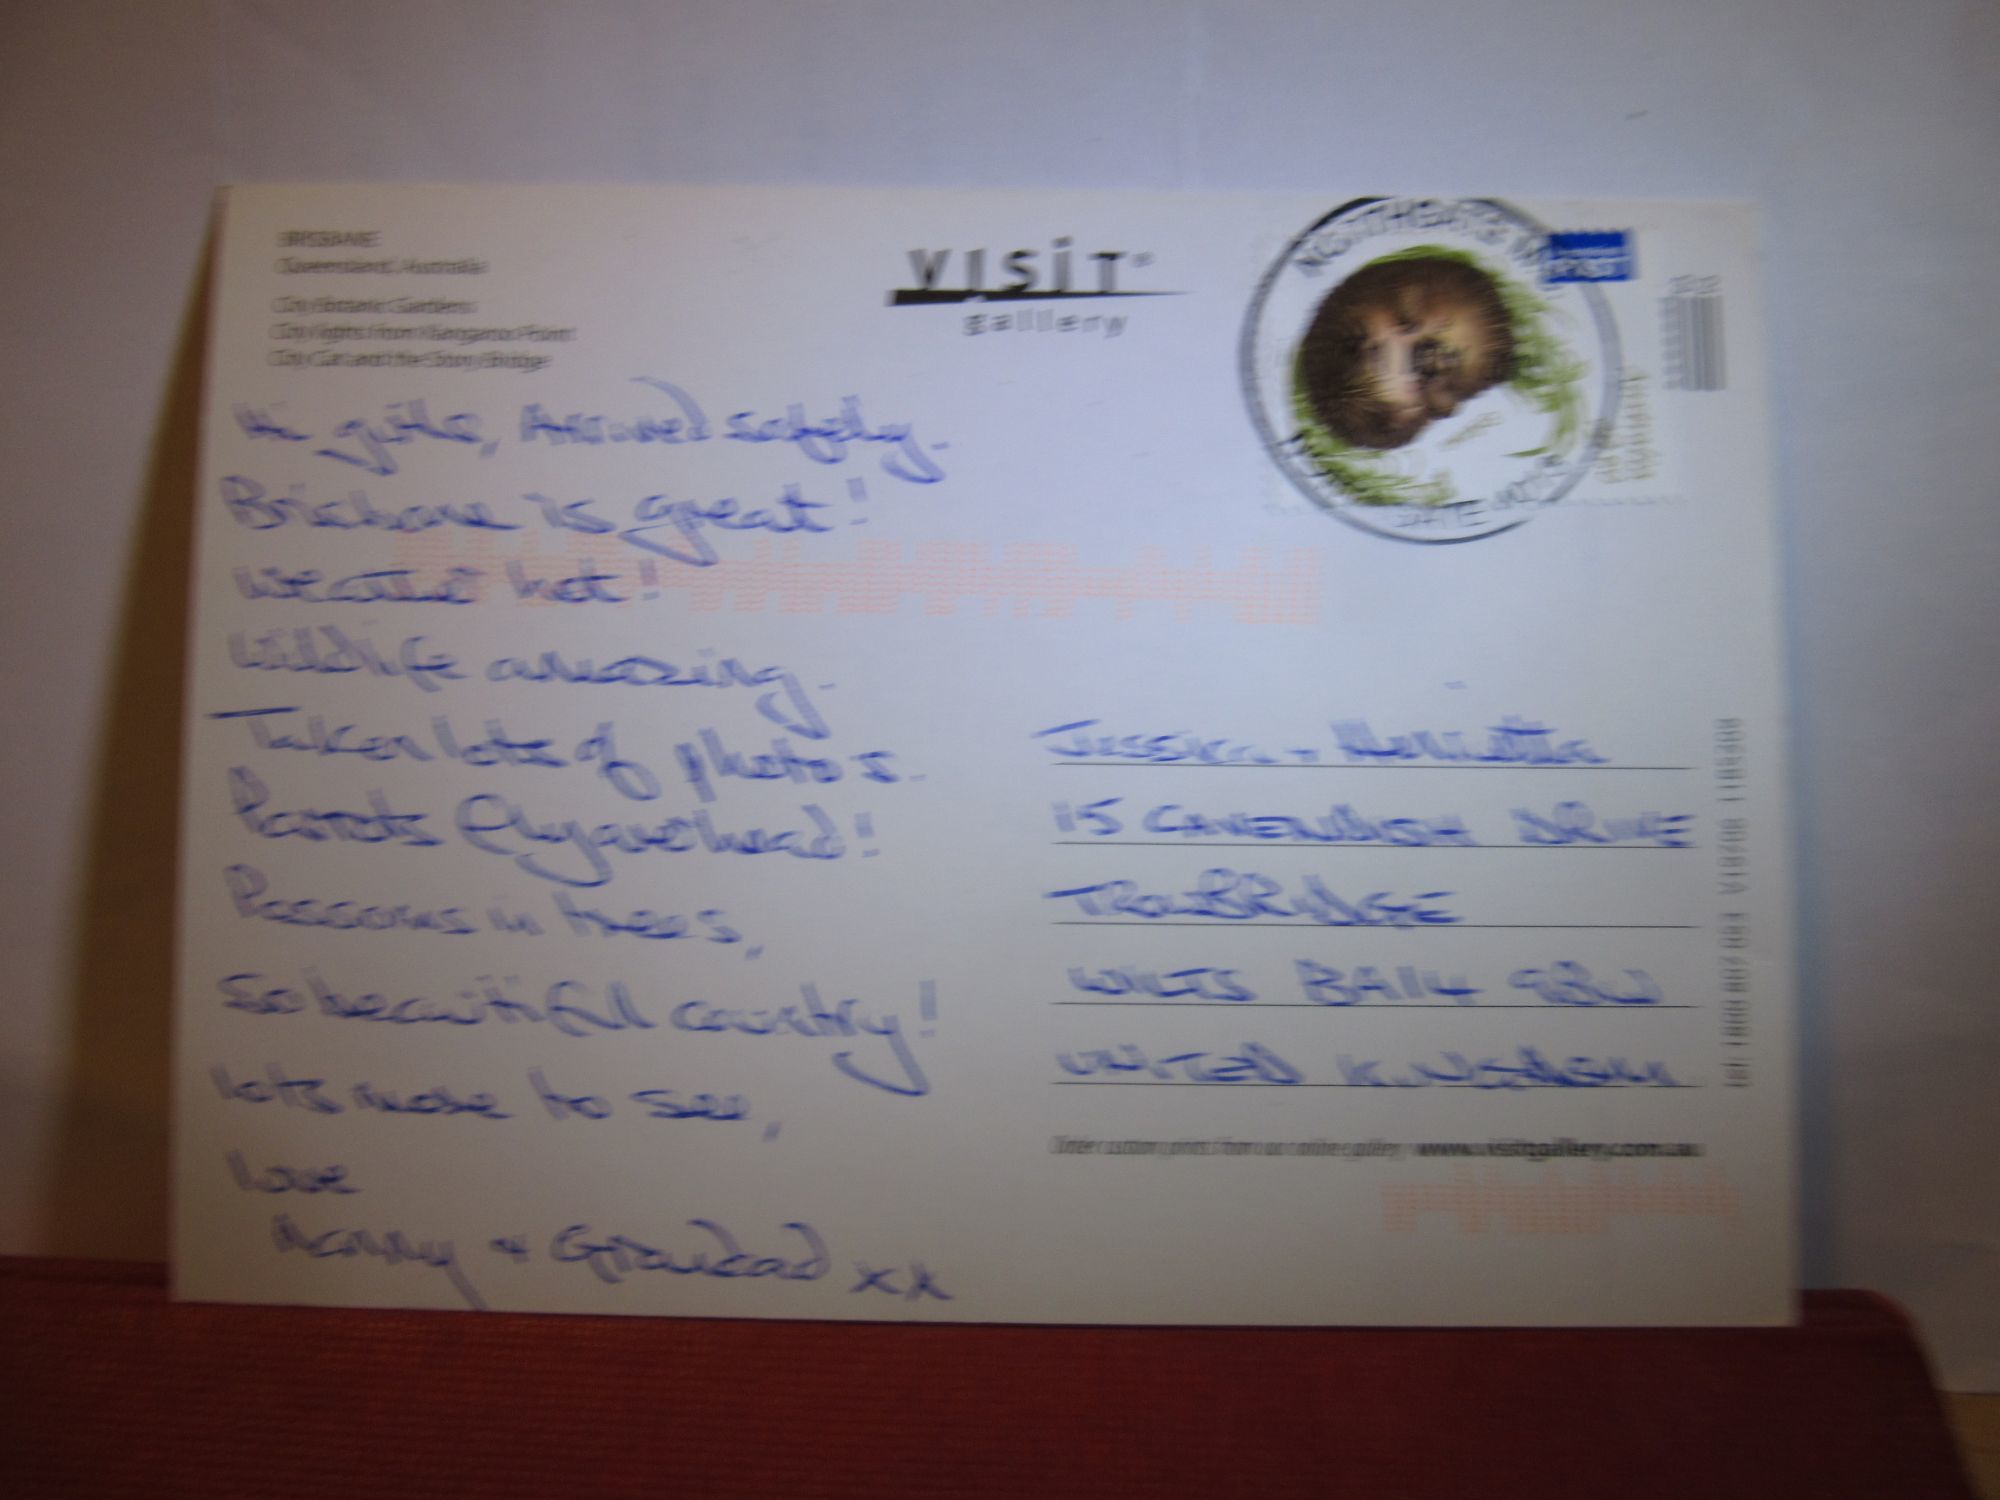 BRISBANE
Queensland, Australia
City Botanic Gardens
City lights from Kangaroo Point
City Cat and the Story Bridge
VISIT
gallery
Hi girls, Arrived safely.
Brisbane is great!
Weather hot!
Wildlife amazing.
Taken lots of photos.
Parrots flying overhead!
Possoms in trees,
So beautiful country!
lots more to see,
love
Nanny + Grandad xx
Jessica + Henrietta
15 CAVENDISH DRIVE
TROWBRIDGE
WILTS BA14
UNITED KINGDOM
Order custom prints from our online gallery www.visitgallery.com.au